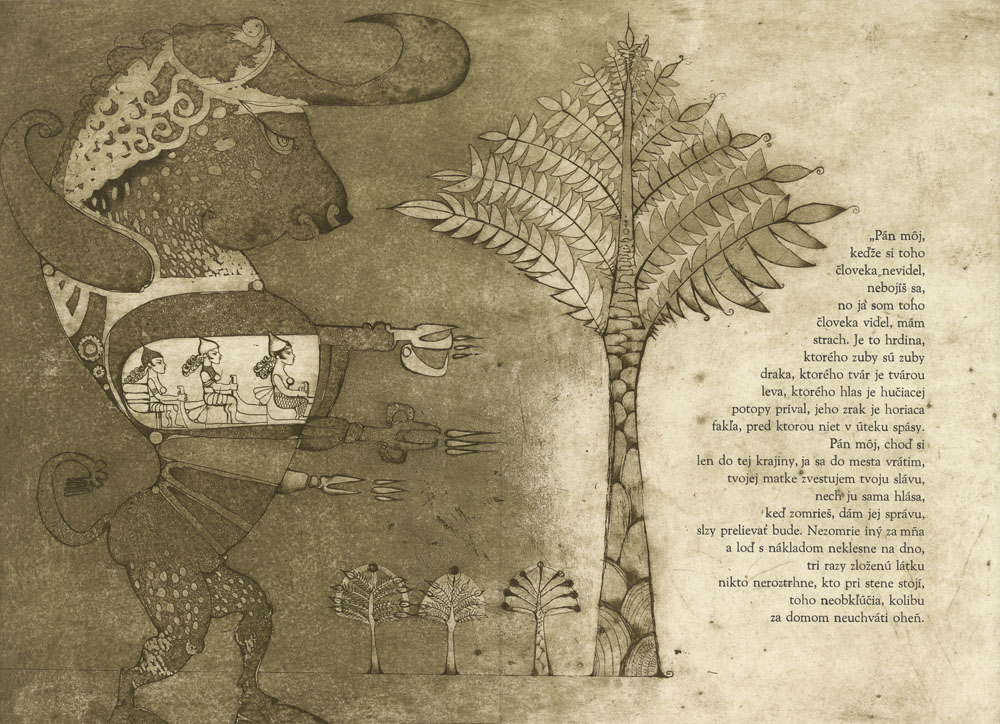 „Pán môj,
keďže si toho
človeka nevidel,
nebojíš sa,
no ja som toho
človeka videl, mám
strach. Je to hrdina,
ktorého zuby sú zuby
draka, ktorého tvár je tvárou
leva, ktorého hlas je hučiacej
potopy príval, jeho zrak je horiaca
fakľa, pred ktorou niet v úteku spásy.
Pán môj, choď si
len do tej krajiny, ja sa do mesta vrátim,
tvojej matke zvestujem tvoju slávu,
nech ju sama hlása,
keď zomrieš, dám jej správu,
slzy prelievať bude. Nezomrie iný za mňa
a loď s nákladom neklesne na dno,
tri razy zloženú látku
nikto neroztrhne, kto pri stene stojí,
toho neobkľúčia, kolibu
za domom neuchváti oheň.